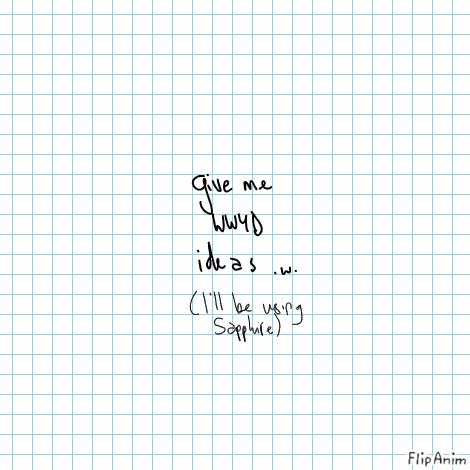 give me
WWYD
ideas .w.
(I'll be using
Sapphire)
FlipAnim